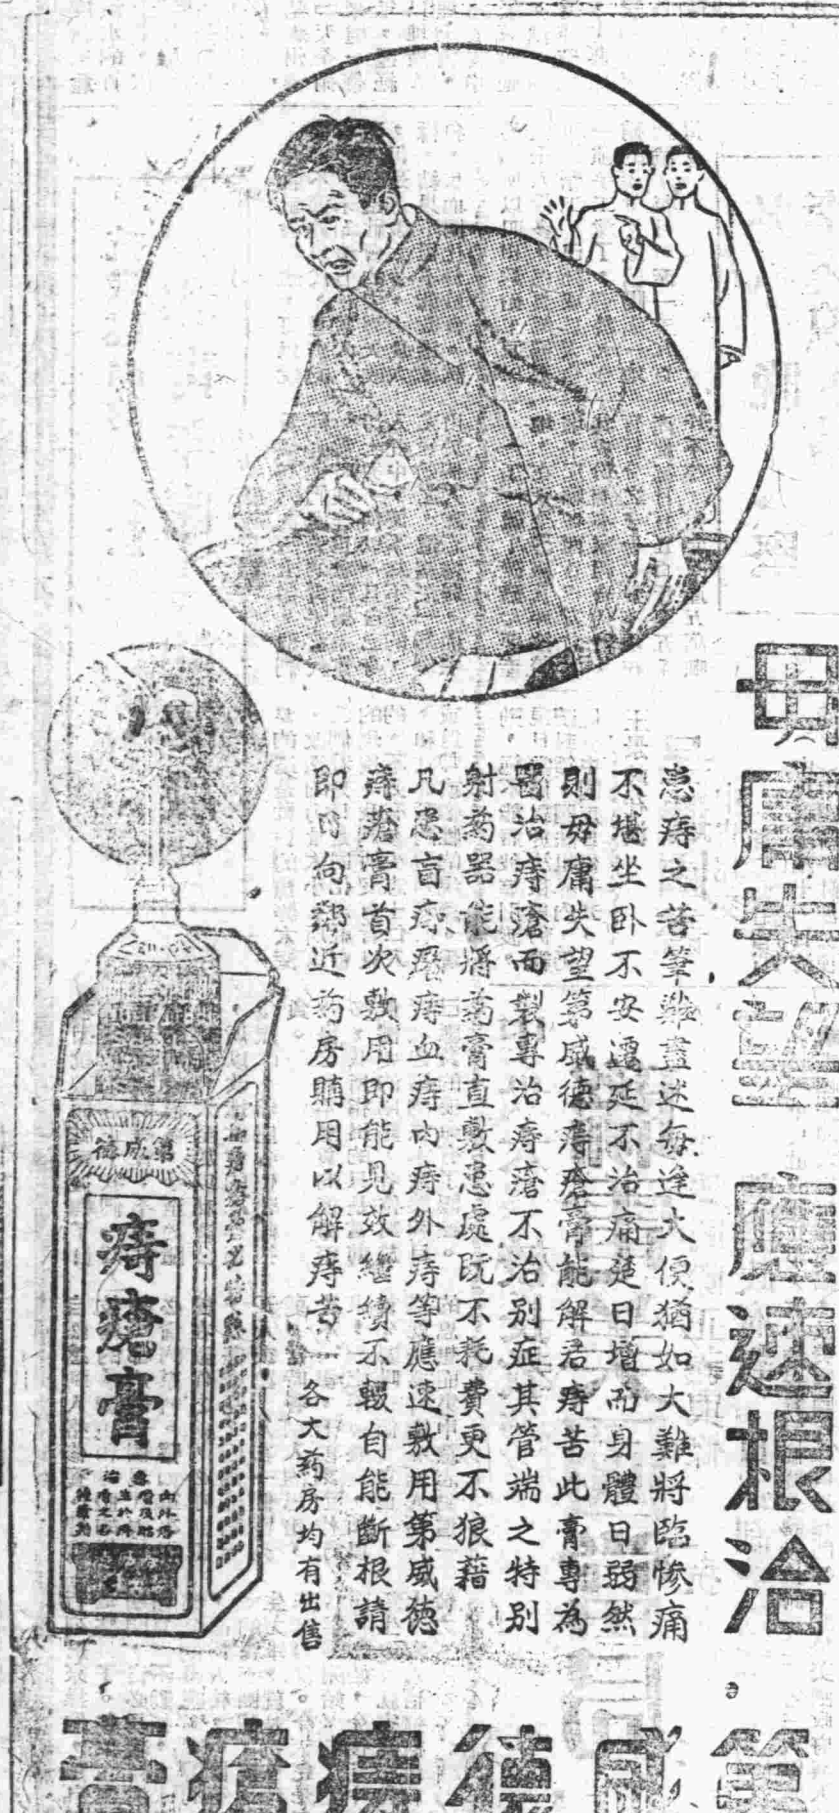 毋庸失望 應速根治
患痔之苦筆難盡述每逢大便猶如大難將臨慘痛
不堪坐卧不安遷延不治痛楚日增而身體日弱然
則毋庸失望第威德痔瘡膏能解君痔苦此膏專為
醫治痔瘡而製專治痔瘡不治別症其管端之特別
射葯器能將葯膏直敷患處既不耗費更不狼藉
凡患盲痔瘺痔血痔內痔外痔等應速敷用第威德
痔瘡膏首次敷用即能見效繼續不輟自能斷根請
即日向鄰近葯房購用以解痔苦
各大葯房均有出售
第威德
痔瘡膏
第威德痔瘡膏